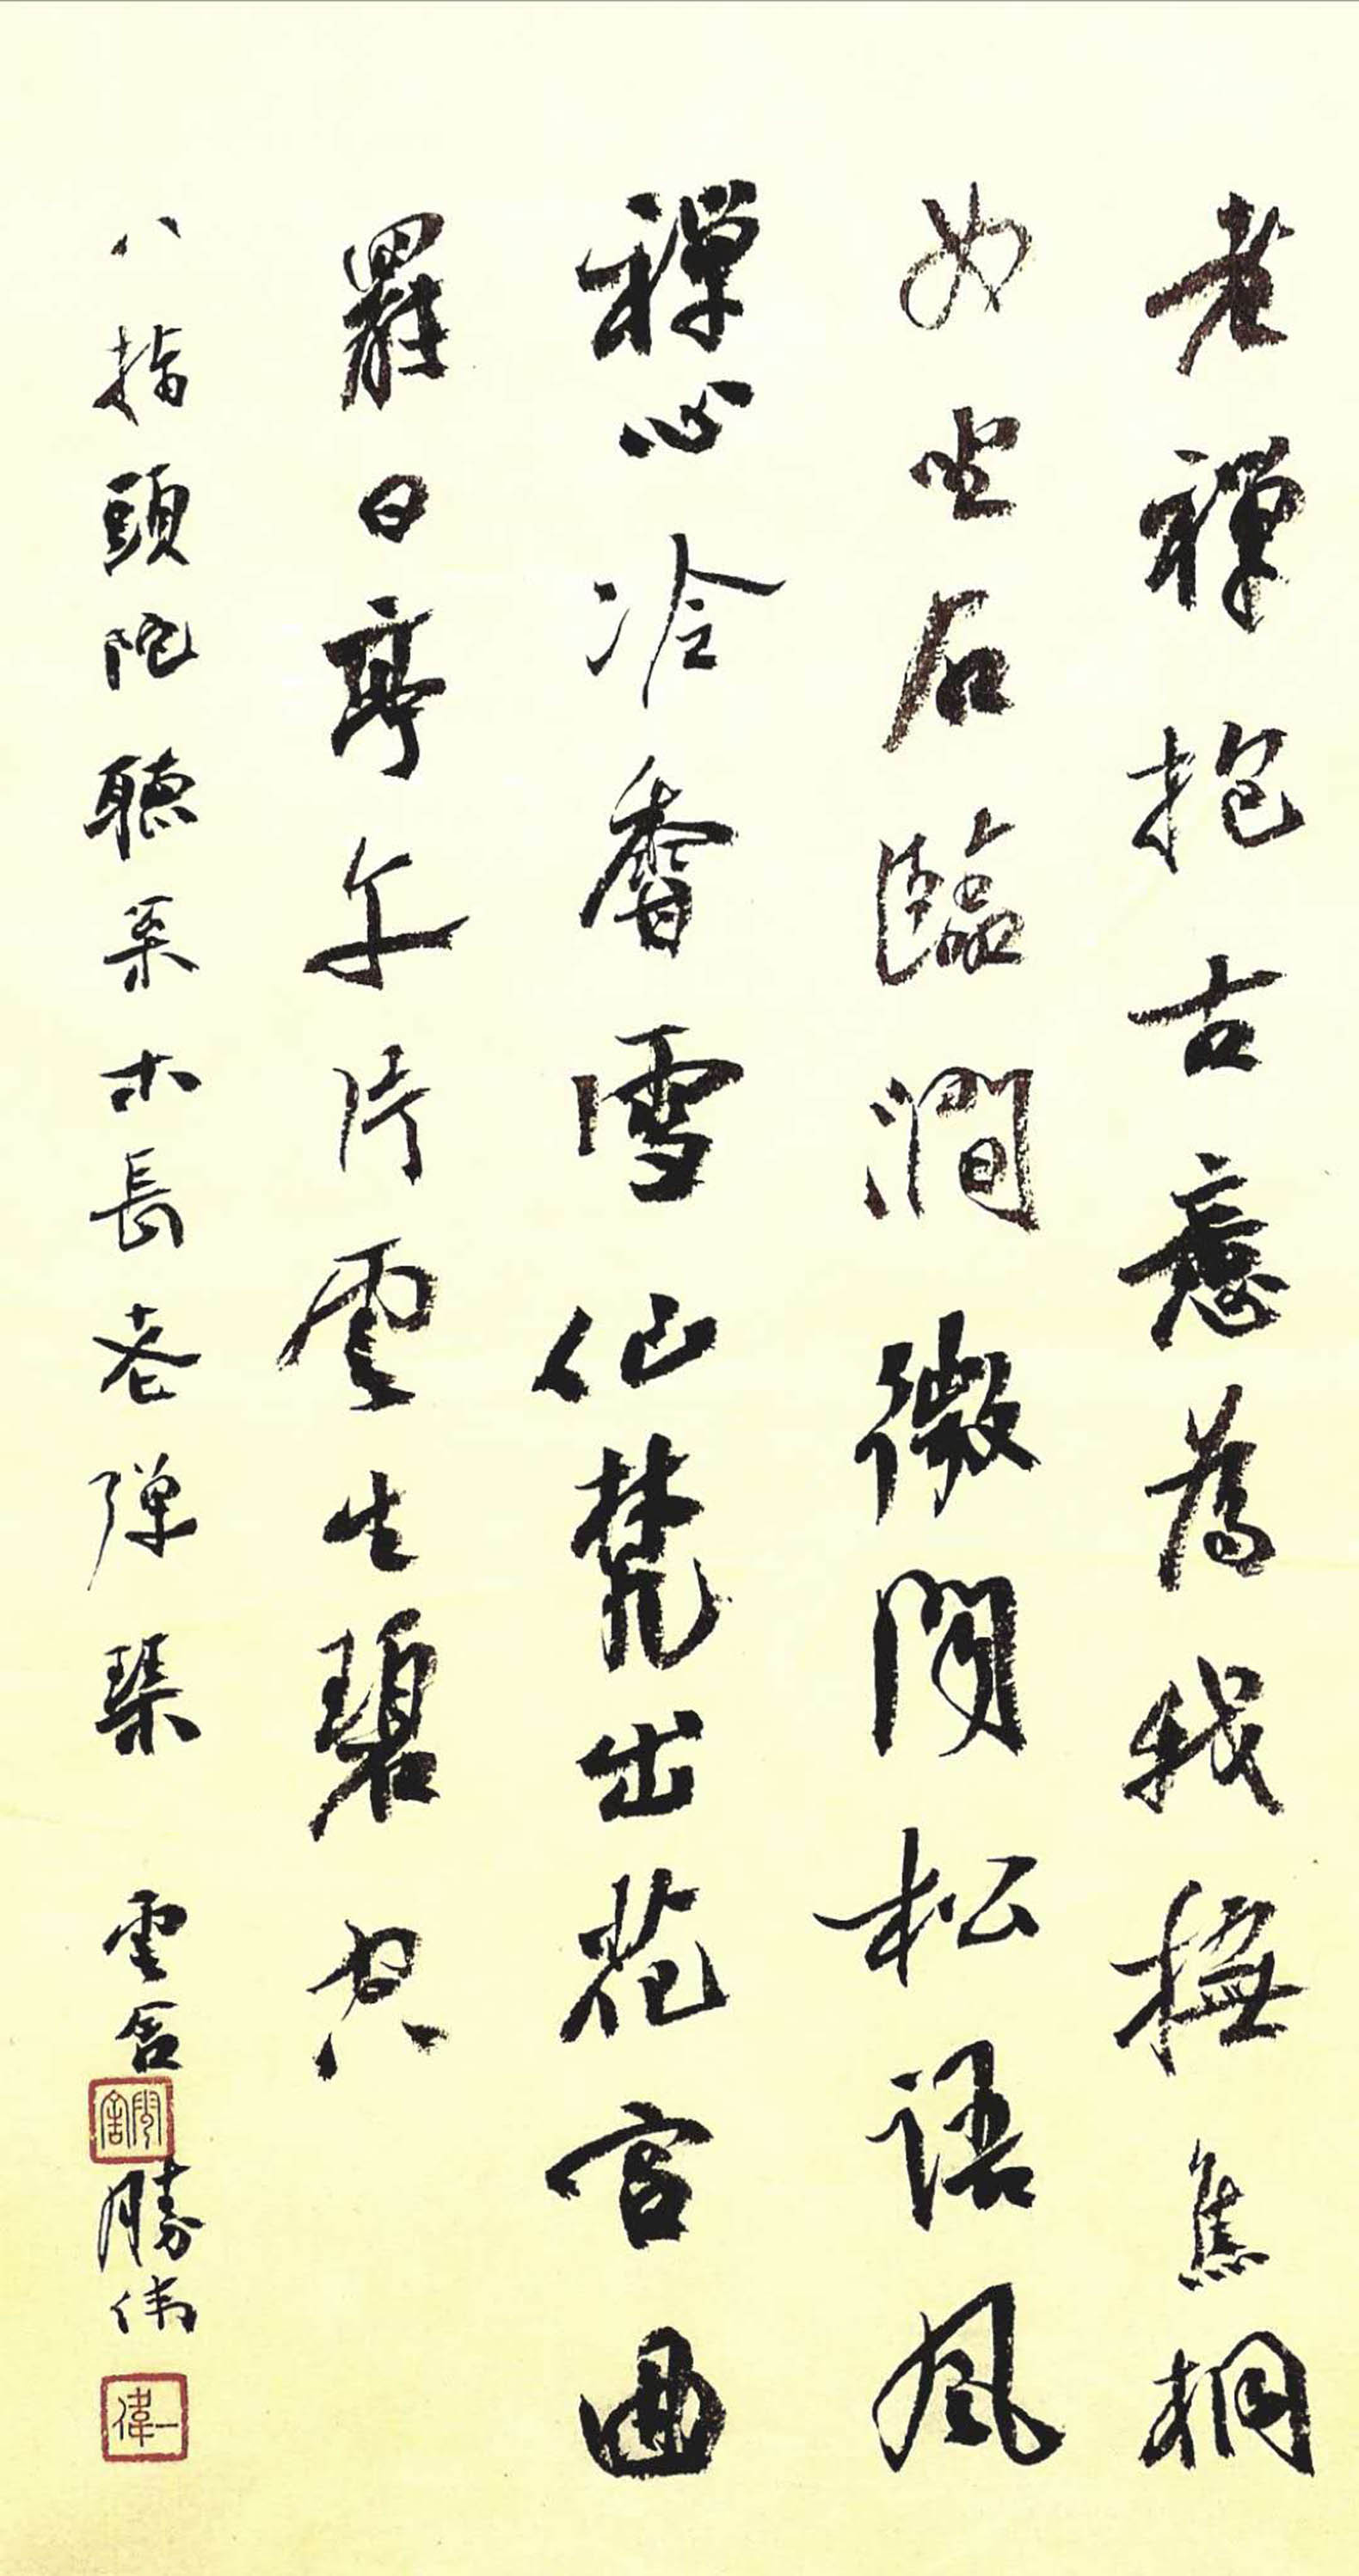 老禪抱古意為我撫焦桐
如坐石臨澗微聞松語風
禪心冷香雪仙梵出花宮曲
罷日亭午片雲生碧空
八指頭陀聽栗木長老彈琴 雲舍
勝偉